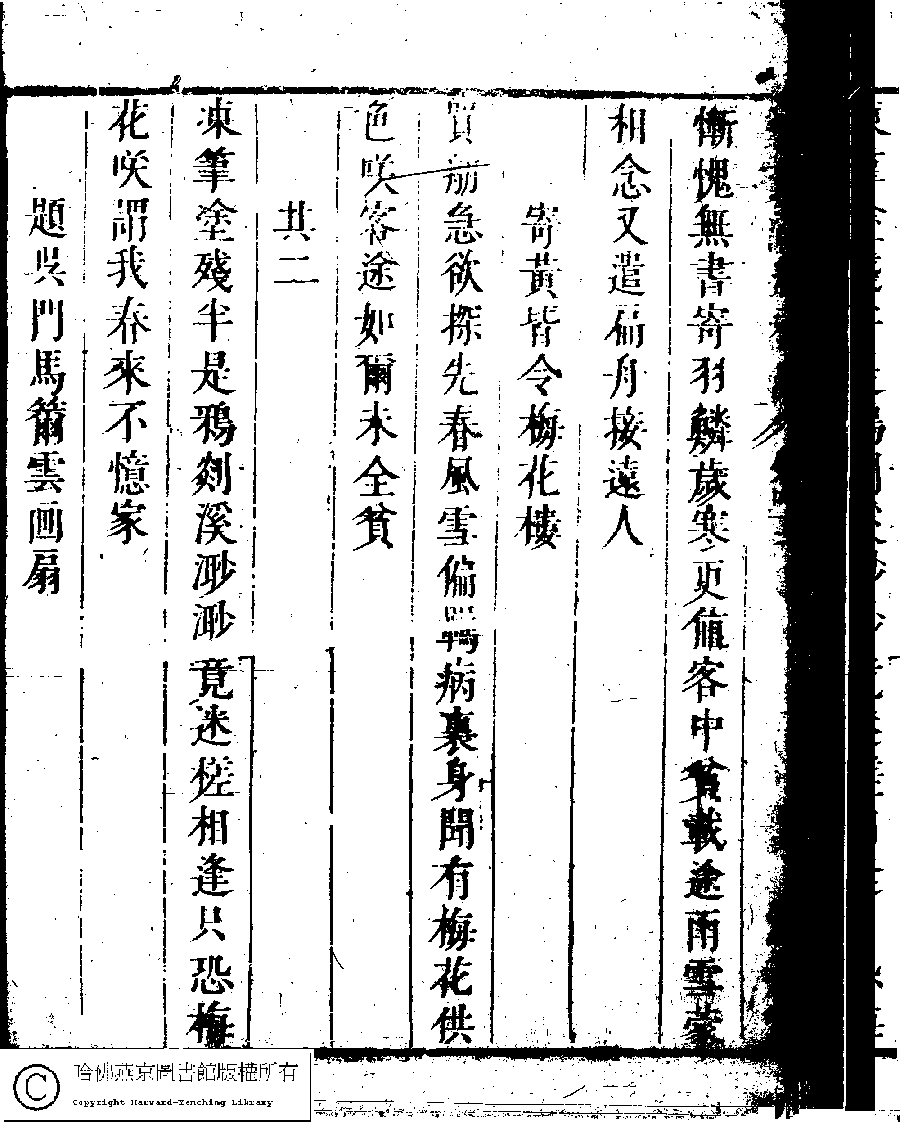 慚愧無書寄羽鱗歲寒更值客中貧載途雨雪蒙
相念又遣扁舟接遠人
寄黃皆令梅花樓
買舫急欲探先春風雪偏羈病裏身聞有梅花供
色咲客途如爾未全貧
其二
凍筆塗殘半是鴉剡溪渺渺竟迷槎相逢只恐梅
花咲謂我春來不憶家
題吳門馬籋雲画扇
哈佛燕京圖書館版權所有
Copyright Harvard-Yenching Library